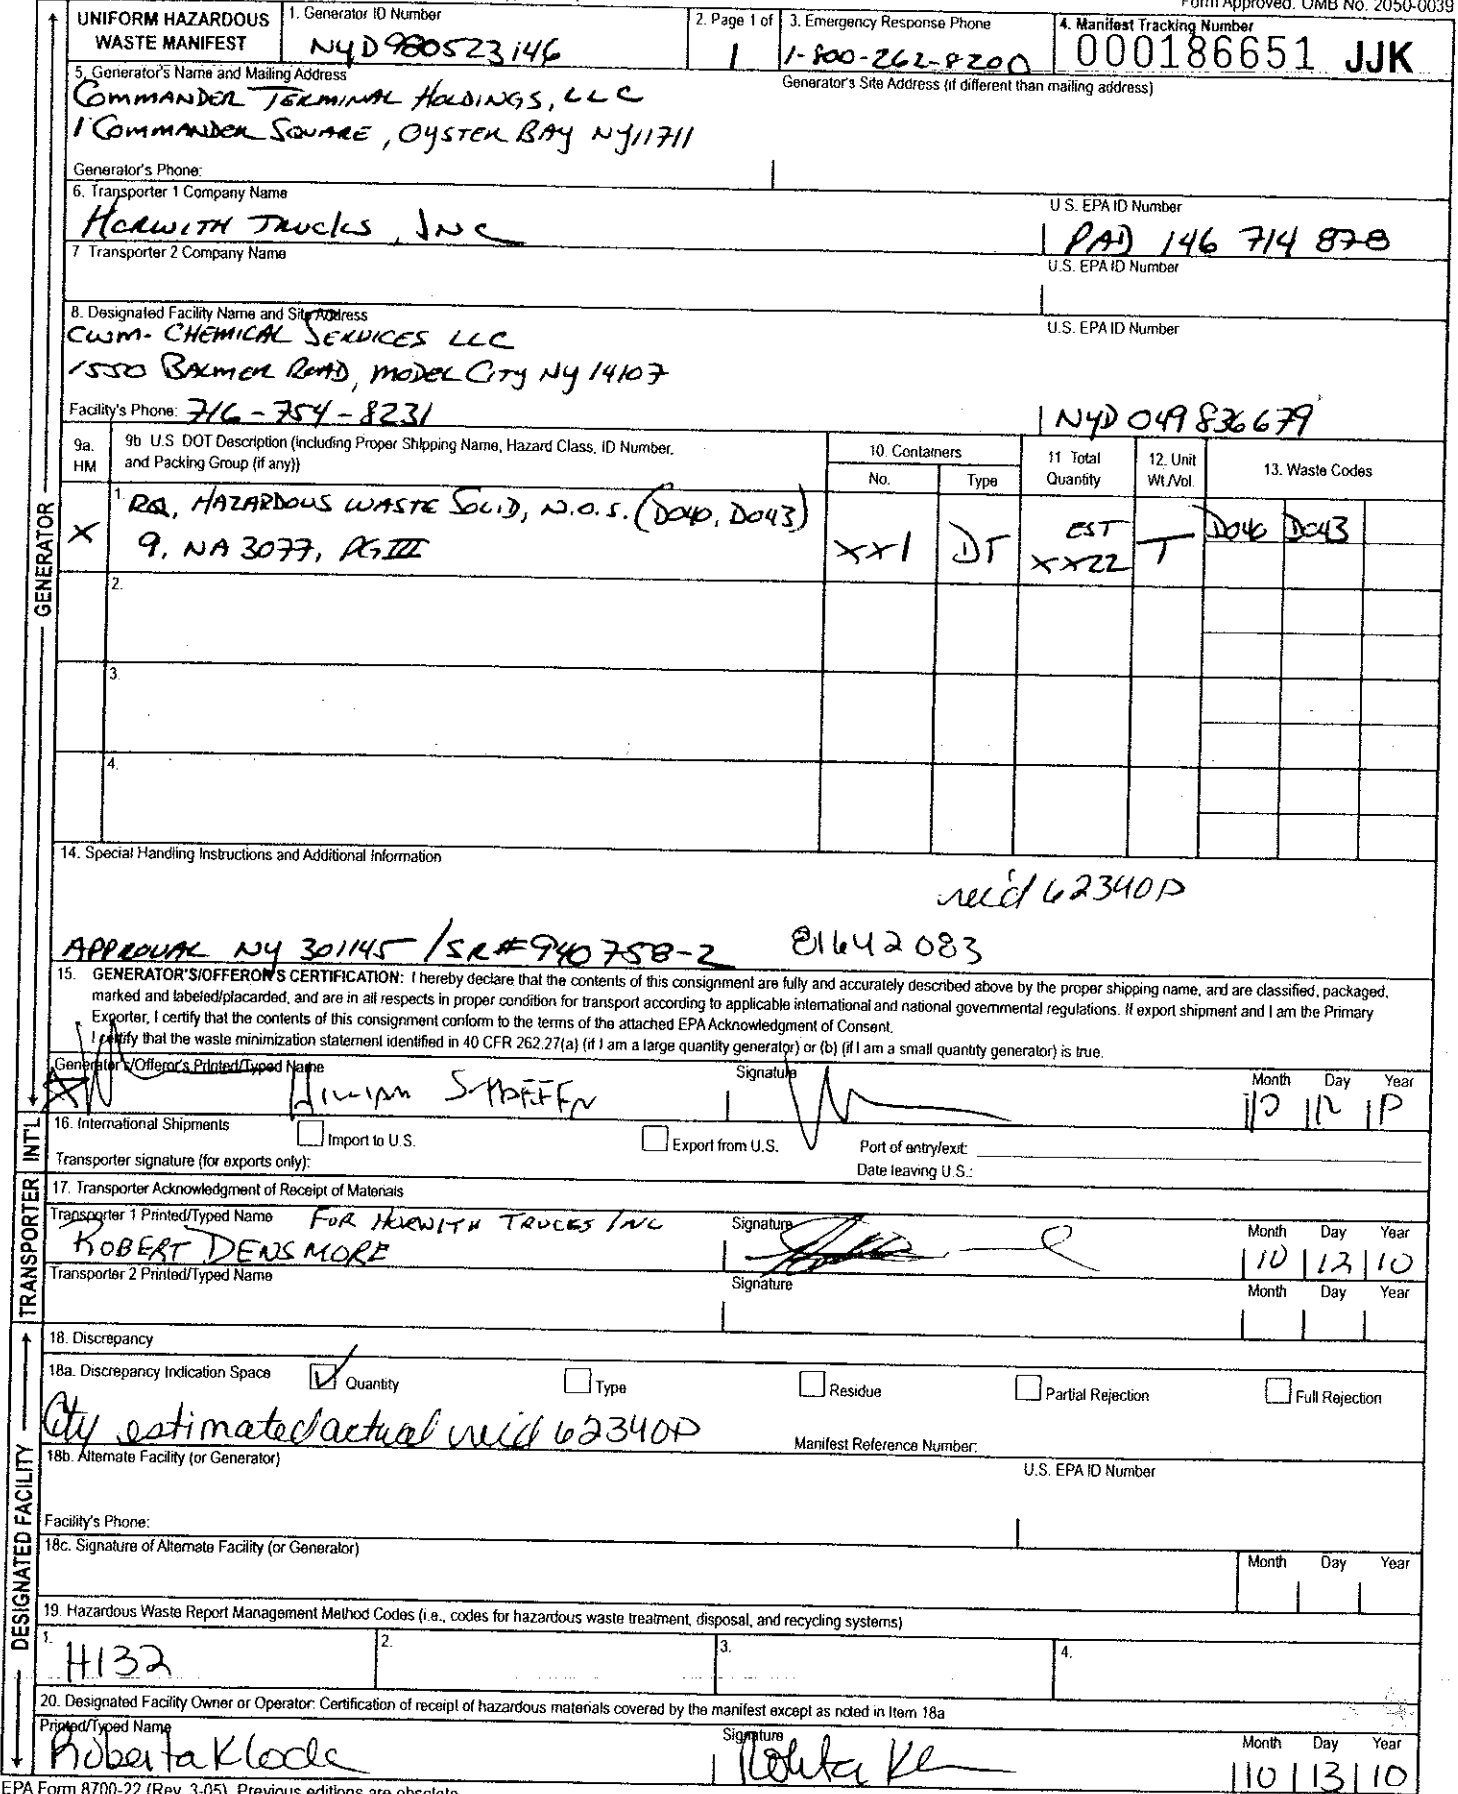 Form Approved. OMB No. 2050-0039
UNIFORM HAZARDOUS WASTE MANIFEST
1. Generator ID Number
NYD980523146
2. Page 1 of
1
3. Emergency Response Phone
1-800-262-8200
4. Manifest Tracking Number
000186651 JJK
5. Generator's Name and Mailing Address
Generator's Site Address (if different than mailing address)
COMMANDER TERMINAL HOLDINGS, LLC
1 COMMANDER SQUARE, OYSTER BAY NY 11711
Generator's Phone:
6. Transporter 1 Company Name
U S. EPA ID Number
HORWITH TRUCKS, INC
PAD 146 714 878
7 Transporter 2 Company Name
U.S. EPA ID Number
8. Designated Facility Name and Site Address
U.S. EPA ID Number
CWM- CHEMICAL SERVICES LLC
1550 BALMER ROAD, MODEL CITY NY 14107
Facility's Phone: 716-754-8231
NYD 049836679
9a. HM
9b U.S DOT Description (including Proper Shipping Name, Hazard Class, ID Number, and Packing Group (if any))
10. Containers
No.
Type
11 Total Quantity
12. Unit Wt./Vol.
13. Waste Codes
X
1. RQ, HAZARDOUS WASTE SOLID, N.O.S. (D040, D043)
9, NA 3077, PG III
XX1
DT
EST XX22
T
D040 D043
2.
3.
4.
14. Special Handling Instructions and Additional Information
rec'd 62340P
APPROVAL NY 301145 / SR# 940758-2 81642083
15. GENERATOR'S/OFFEROR'S CERTIFICATION: I hereby declare that the contents of this consignment are fully and accurately described above by the proper shipping name, and are classified, packaged,
marked and labeled/placarded, and are in all respects in proper condition for transport according to applicable international and national governmental regulations. If export shipment and I am the Primary
Exporter, I certify that the contents of this consignment conform to the terms of the attached EPA Acknowledgment of Consent.
I certify that the waste minimization statement identified in 40 CFR 262.27(a) (if I am a large quantity generator) or (b) (if I am a small quantity generator) is true.
Generator's/Offeror's Printed/Typed Name
Signature
Month Day Year
16. International Shipments
Import to U.S.
Export from U.S.
Port of entry/exit:
Transporter signature (for exports only):
Date leaving U.S.:
17. Transporter Acknowledgment of Receipt of Materials
Transporter 1 Printed/Typed Name FOR HORWITH TRUCKS INC
Signature
Month Day Year
ROBERT DENSMORE
10 12 10
Transporter 2 Printed/Typed Name
Signature
Month Day Year
18. Discrepancy
18a. Discrepancy Indication Space
Quantity
Type
Residue
Partial Rejection
Full Rejection
Qty estimated actual rec'd 62340P
Manifest Reference Number:
18b. Alternate Facility (or Generator)
U.S. EPA ID Number
Facility's Phone:
18c. Signature of Alternate Facility (or Generator)
Month Day Year
19. Hazardous Waste Report Management Method Codes (i.e., codes for hazardous waste treatment, disposal, and recycling systems)
1. H132
2.
3.
4.
20. Designated Facility Owner or Operator: Certification of receipt of hazardous materials covered by the manifest except as noted in Item 18a
Printed/Typed Name
Signature
Month Day Year
Roberta
10 13 10
EPA Form 8700-22 (Rev. 3-05) Previous editions are obsolete.
GENERATOR
INT'L
TRANSPORTER
DESIGNATED FACILITY